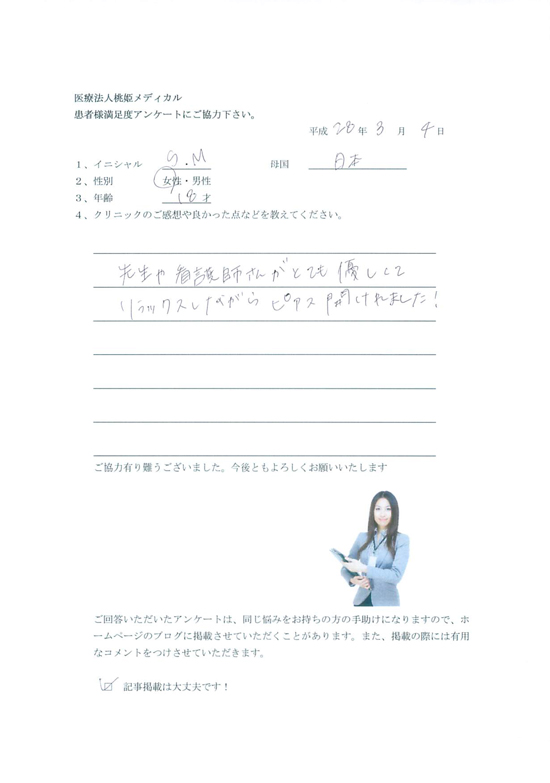 医療法人桃姫メディカル
患者様満足度アンケートにご協力下さい。
平成 28 年 3 月 4 日
1、イニシャル G・M 母国 日本
2、性別 女性・男性
3、年齢 18才
4、クリニックのご感想や良かった点などを教えてください。
先生や看護師さんがとても優しくて
リラックスしながら ピアス開けれました！
ご協力有り難うございました。今後ともよろしくお願いいたします
ご回答いただいたアンケートは、同じ悩みをお持ちの方の手助けになりますので、ホ
ームページのブログに掲載させていただくことがあります。また、掲載の際には有用
なコメントをつけさせていただきます。
記事掲載は大丈夫です！